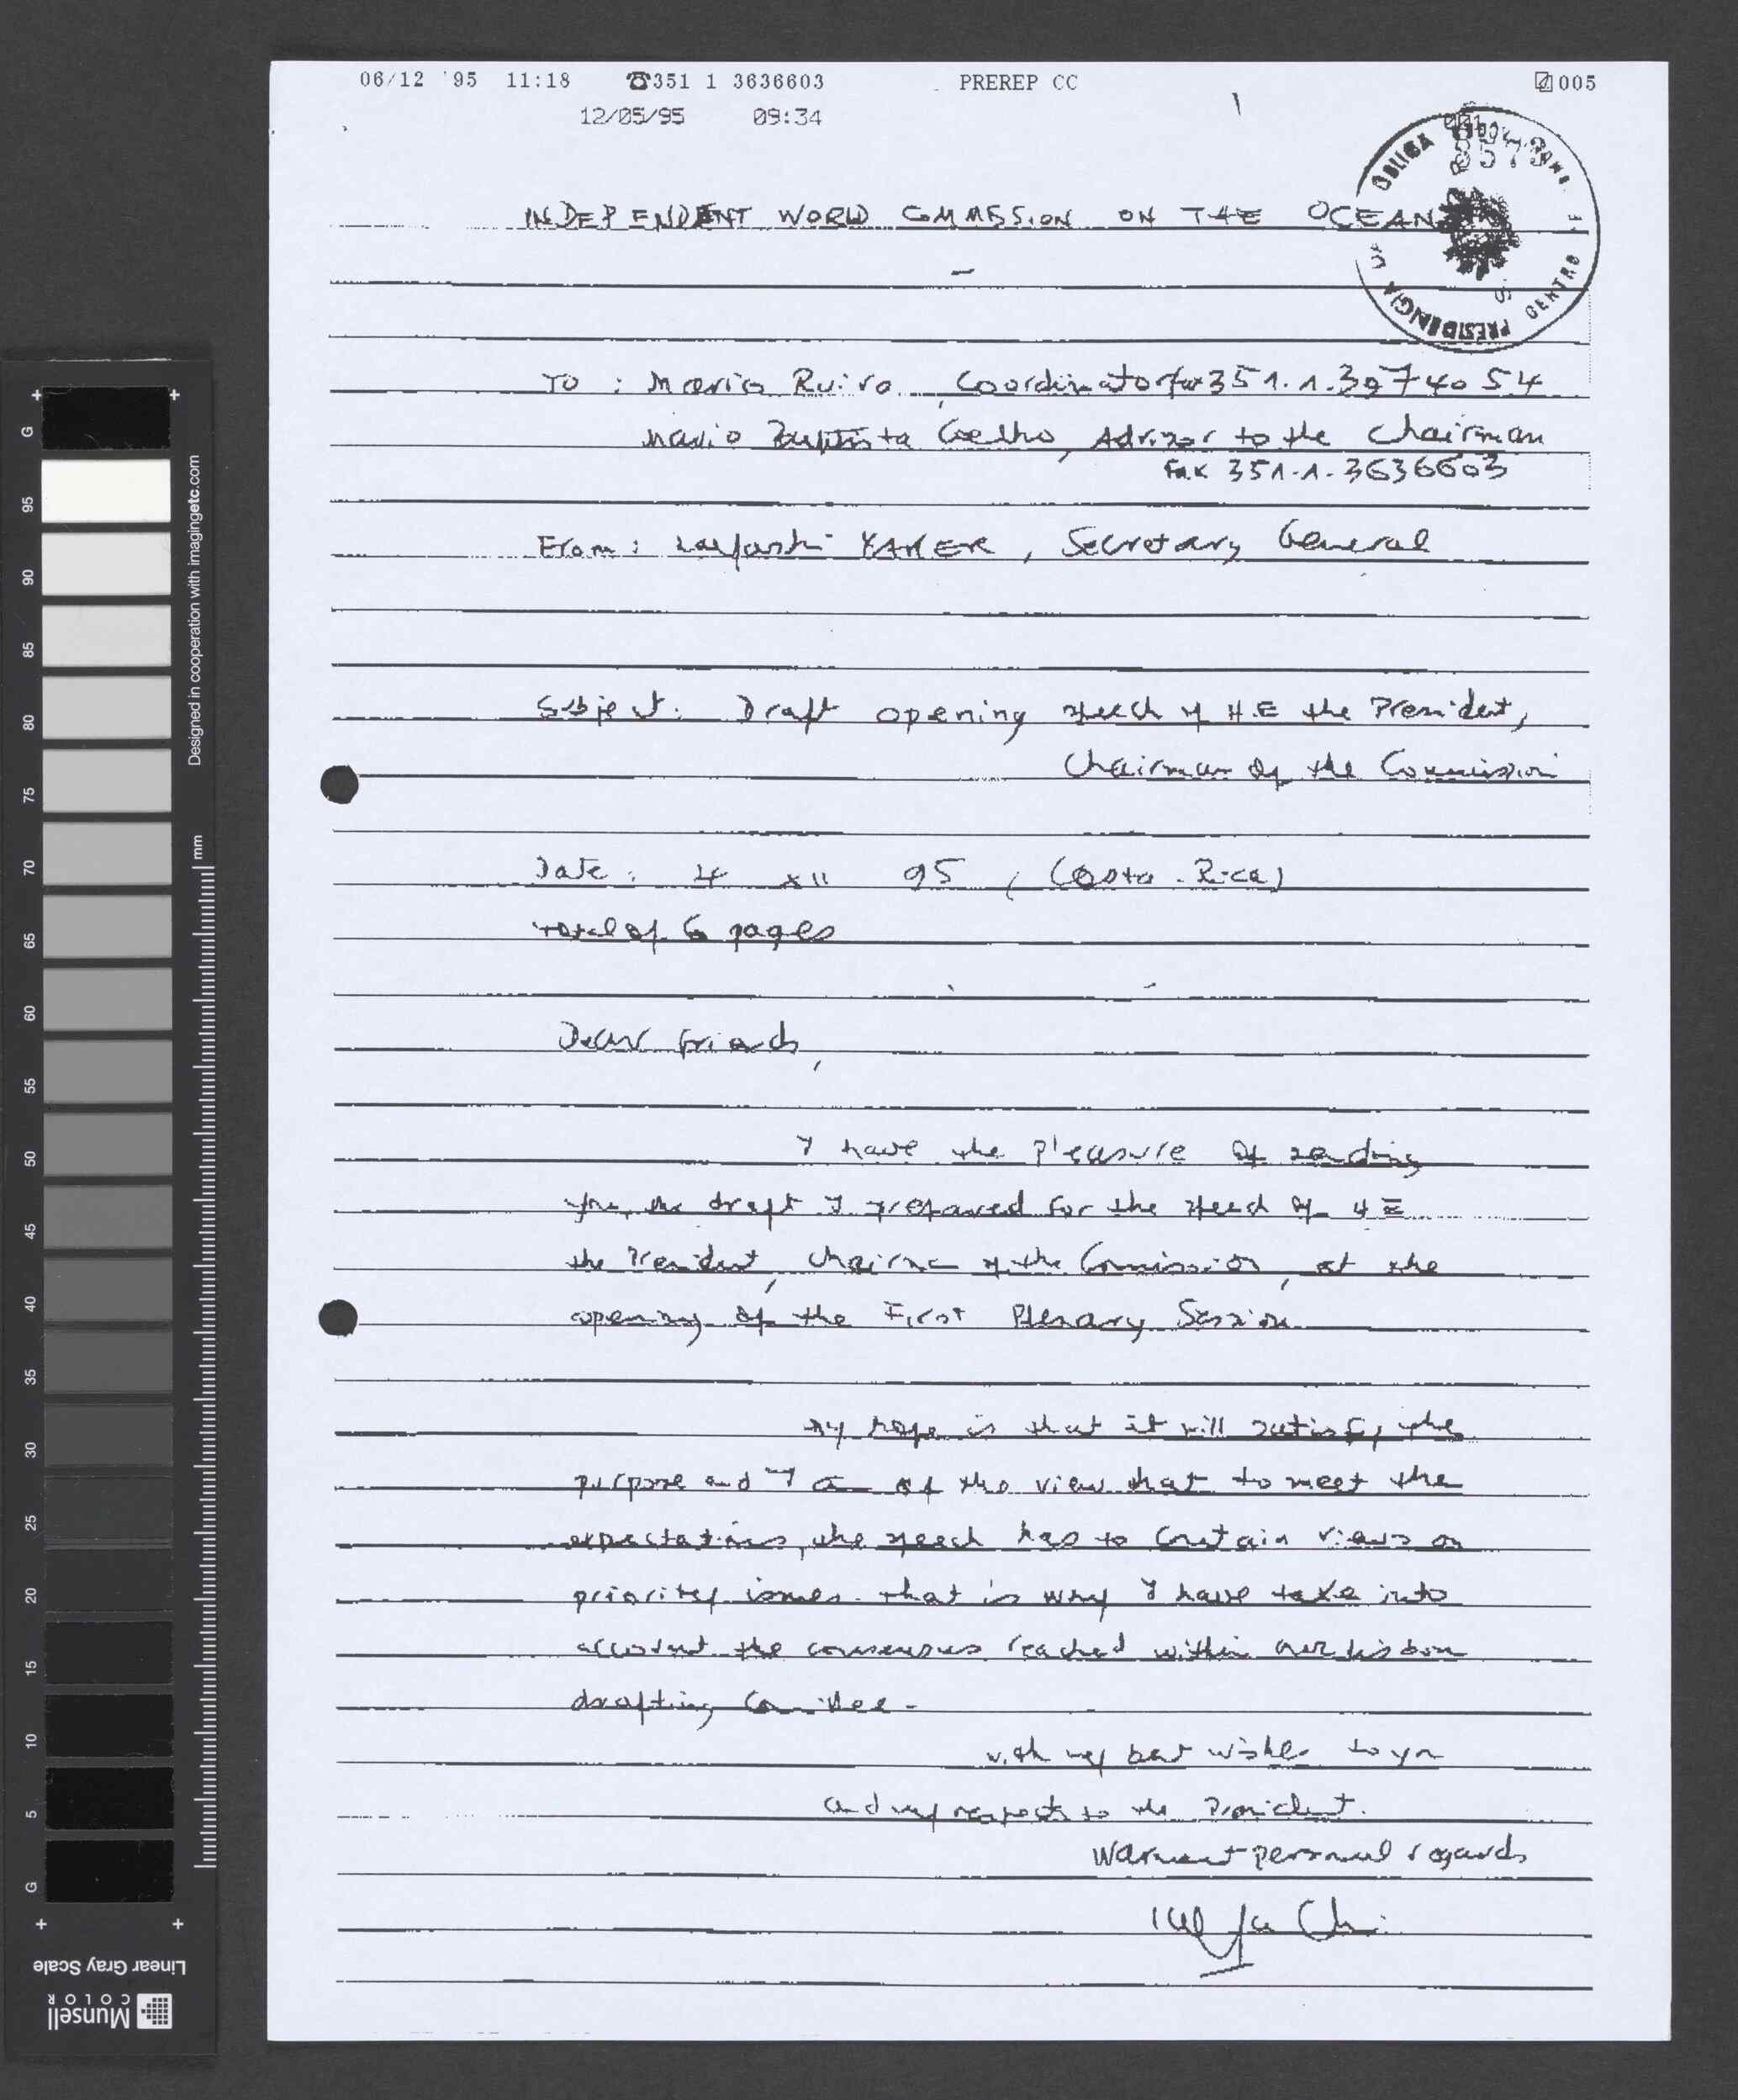 06/12 '95 11:18 ☎351 1 3636603 PREREP CC 005
12/05/95 09:34
INDEPENDENT WORLD COMMISSION ON THE OCEANS
TO : Mario Ruivo, Coordinator fax 351.1.3974054
Mario Baptista Coelho, Advisor to the Chairman
Fax 351.1.3636603
From : Layashi YAKER, Secretary General
Subject: Draft opening speech of H.E the President,
Chairman of the Commission
Date : 4 XII 95 (Costa-Rica)
total of 6 pages
Dear Friends,
I have the pleasure of sending
you, the draft I prepared for the speech of HE
the President, Chairman of the Commission, at the
opening of the First Plenary Session
My hope is that it will satisfy the
purpose and I am of the view that to meet the
expectations, the speech has to contain views on
priority issues. that is why I have take into
account the consensus reached within our Lisbon
drafting Committee-
with my best wishes to you
and my respects to the President.
Warmest personal regards
PRESIDENCIA DA
CENTRO
G
95
90
85
80
75
70
65
60
55
50
45
40
35
30
25
20
15
10
5
G
Designed in cooperation with imagingetc.com
mm
Linear Gray Scale
Munsell
COLOR